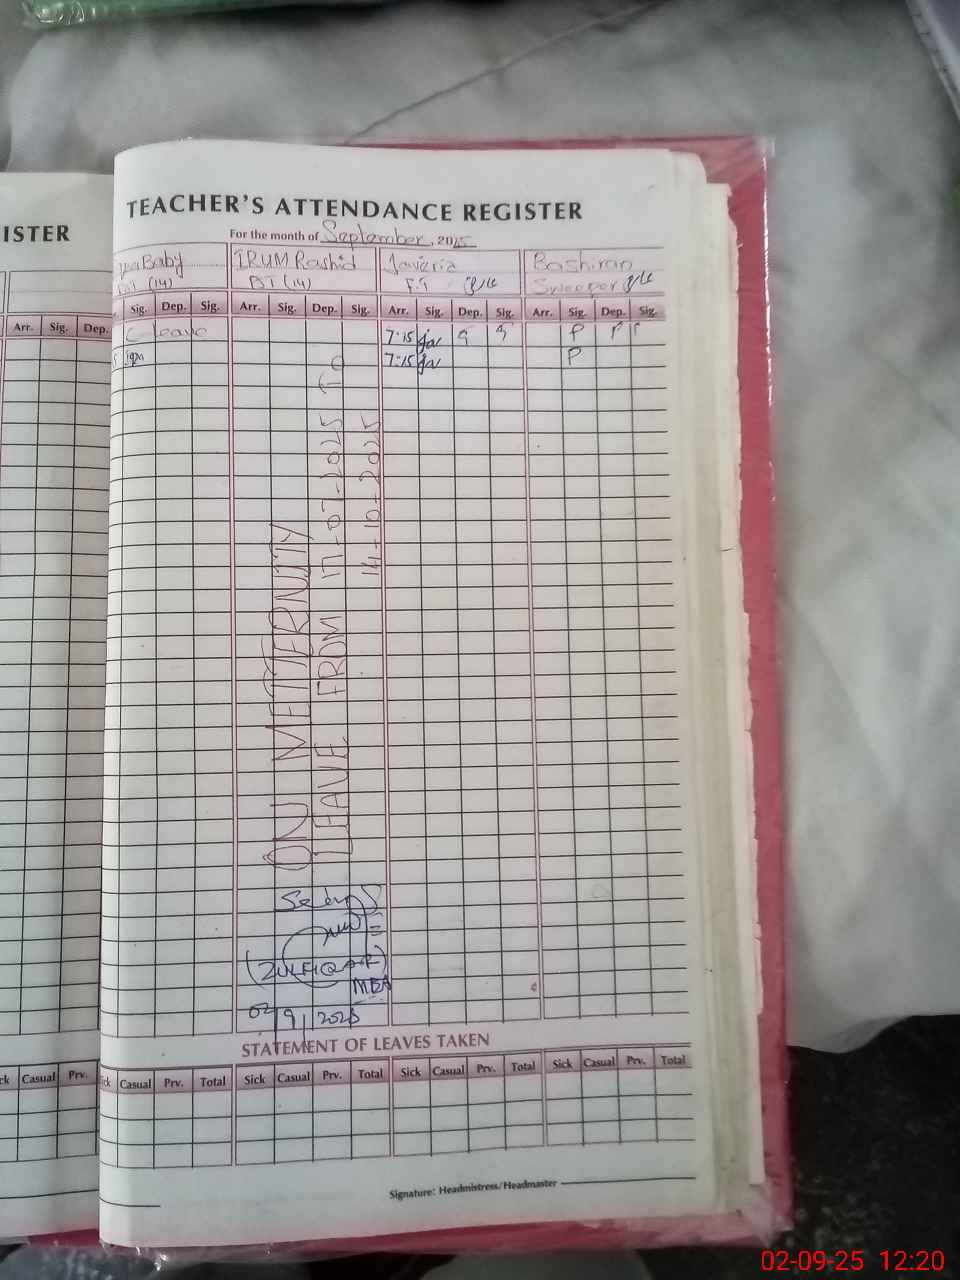 ISTER
Arr. Sig. Dep.
Casual Prv.
TEACHER'S ATTENDANCE REGISTER
For the month of September, 2025
Baby IRUM Rashid Javeria Bashiran
(14) (14) Sweeper
Sig. Dep. Sig. Arr. Sig. Dep. Sig. Arr. Sig. Dep. Sig. Arr. Sig. Dep. Sig.
C leave 7:15 P P
7:15 P
ON METTERNITY
LEAVE FROM 17-07-2025 To
14-10-2025
(ZULFIQAR)
MEA
02/9/2025
STATEMENT OF LEAVES TAKEN
Sick Casual Prv. Total Sick Casual Prv. Total Sick Casual Prv. Total Sick Casual Prv. Total
Signature: Headmistress/Headmaster
02-09-25 12:20